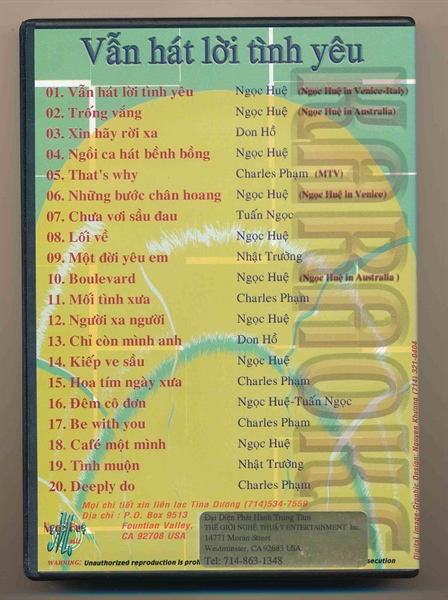 Vẫn hát lời tình yêu
01. Vẫn hát lời tình yêu Ngọc Huệ (Ngọc Huệ in Venice-Italy)
02. Trống vắng Ngọc Huệ (Ngọc Huệ in Australia)
03. Xin hãy rời xa Don Hồ
04. Ngồi ca hát bềnh bồng Ngọc Huệ
05. That's why Charles Phạm (MTV)
06. Những bước chân hoang Ngọc Huệ (Ngọc Huệ in Venice)
07. Chưa vơi sầu đau Tuấn Ngọc
08. Lối về Ngọc Huệ
09. Một đời yêu em Nhật Trường
10. Boulevard Ngọc Huệ (Ngọc Huệ in Australia )
11. Mối tình xưa Charles Phạm
12. Người xa người Ngọc Huệ
13. Chỉ còn mình anh Don Hồ
14. Kiếp ve sầu Ngọc Huệ
15. Hoa tím ngày xưa Charles Phạm
16. Đêm cô đơn Ngọc Huệ-Tuấn Ngọc
17. Be with you Charles Phạm
18. Café một mình Ngọc Huệ
19. Tình muộn Nhật Trường
20. Deeply do Charles Phạm
KARAOKE
Digital Image, Graphic Design: Nguyen Khuong (714) 321-0404
Mọi chi tiết xin liên lạc Tina Dương (714)534-7559
Địa chỉ : P.O. Box 9513
Fountian Valley,
CA 92708 USA
Ngọc Huệ
Đại Diện Phát Hành Trung Tâm
THẾ GIỚI NGHỆ THUẬT ENTERTAINMENT Inc.
14771 Moran Street
Westminster, CA 92683 USA
Tel: 714-863-1348
WARNING! Unauthorized reproduction is proh
secution